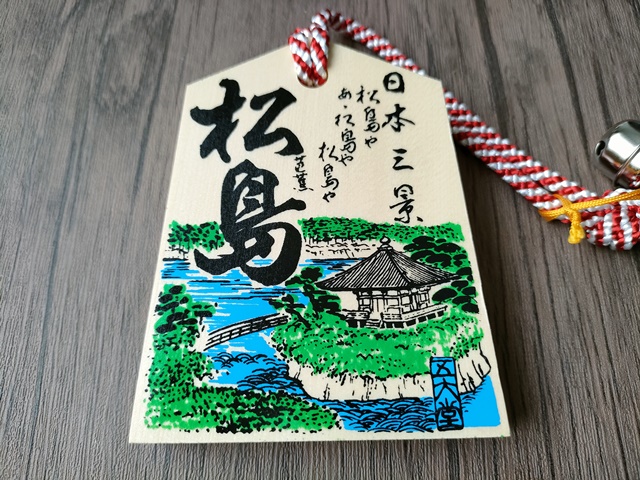 日本三景
松島や
あゝ松島や
松島や
芭蕉
松島
五大堂